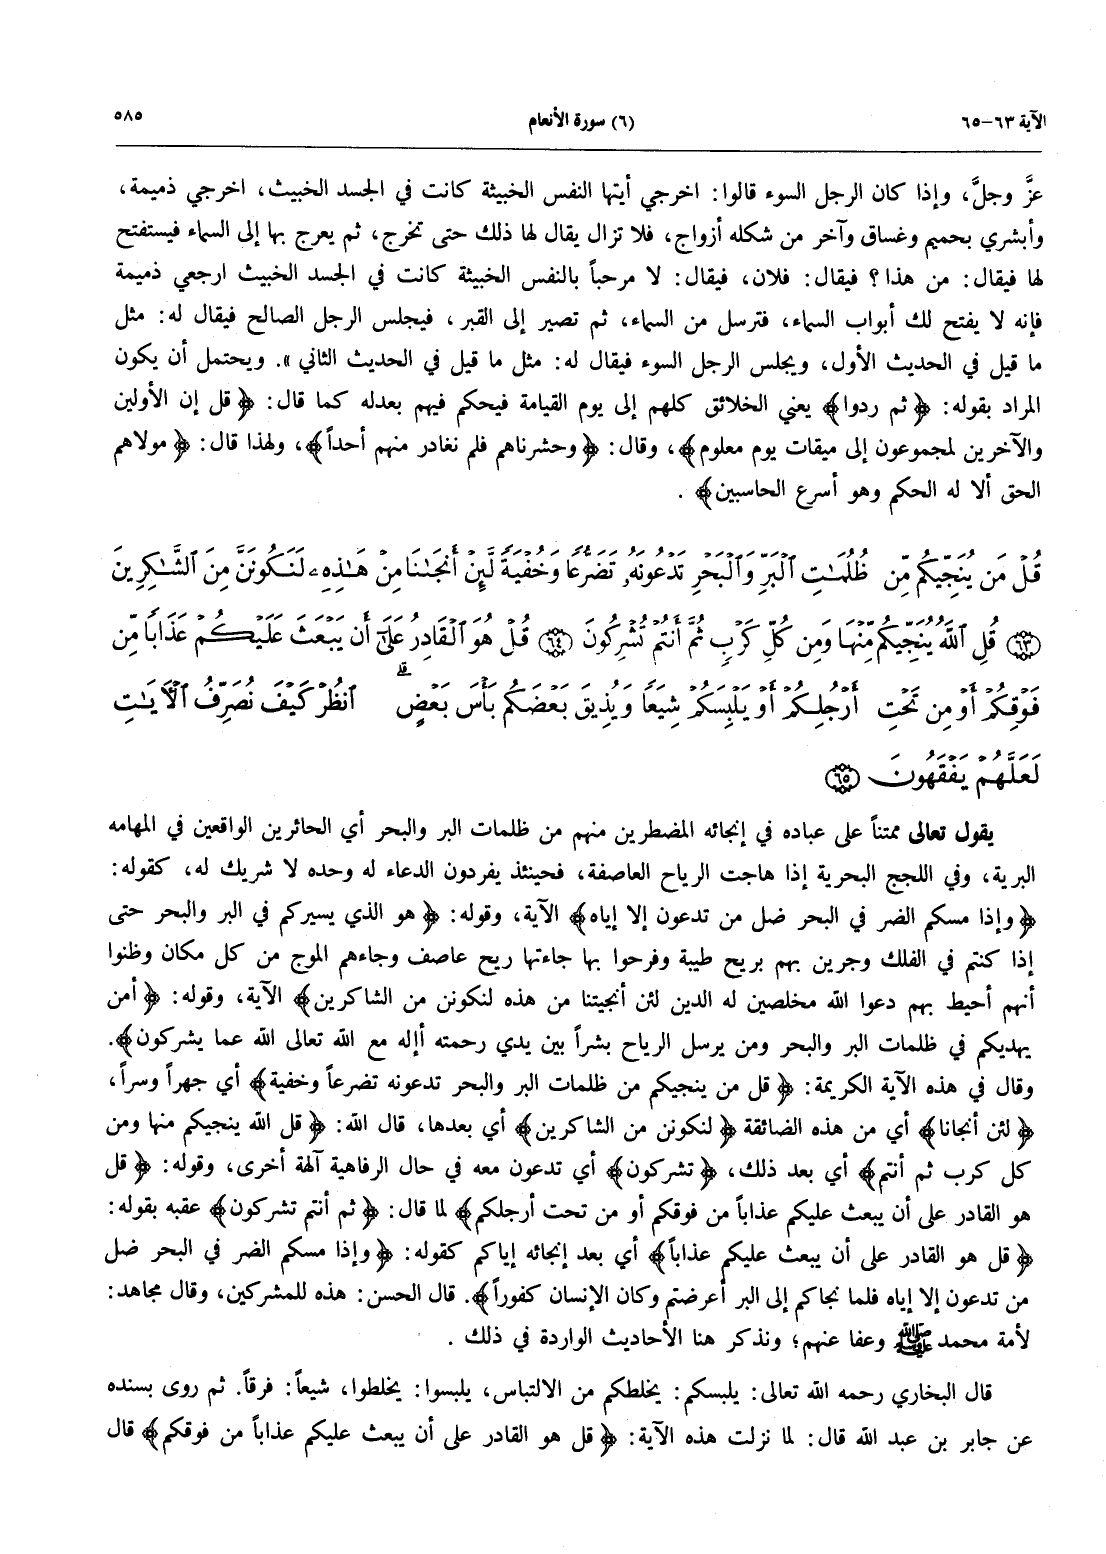 الآية ٦٣-٦٥ (٦) سورة الأنعام ٥٨٥
عزَّ وجلَّ، وإذا كان الرجل السوء قالوا: اخرجي أيتها النفس الخبيثة كانت في الجسد الخبيث، اخرجي ذميمة،
وأبشري بحميم وغساق وآخر من شكله أزواج، فلا تزال يقال لها ذلك حتى تخرج، ثم يعرج بها إلى السماء فيستفتح
لها فيقال: من هذا؟ فيقال: فلان، فيقال: لا مرحباً بالنفس الخبيثة كانت في الجسد الخبيث ارجعي ذميمة
فإنه لا يفتح لك أبواب السماء، فترسل من السماء، ثم تصير إلى القبر، فيجلس الرجل الصالح فيقال له: مثل
ما قيل في الحديث الأول، ويجلس الرجل السوء فيقال له: مثل ما قيل في الحديث الثاني». ويحتمل أن يكون
المراد بقوله: ﴿ثم ردوا﴾ يعني الخلائق كلهم إلى يوم القيامة فيحكم فيهم بعدله كما قال: ﴿قل إن الأولين
والآخرين لمجموعون إلى ميقات يوم معلوم﴾، وقال: ﴿وحشرناهم فلم نغادر منهم أحداً﴾، ولهذا قال: ﴿مولاهم
الحق ألا له الحكم وهو أسرع الحاسبين﴾.
قُلْ مَن يُنَجِّيكُم مِّن ظُلُمَٰتِ ٱلْبَرِّ وَٱلْبَحْرِ تَدْعُونَهُۥ تَضَرُّعًا وَخُفْيَةً لَّئِنْ أَنجَىٰنَا مِنْ هَٰذِهِۦ لَنَكُونَنَّ مِنَ ٱلشَّٰكِرِينَ
٦٣ قُلِ ٱللَّهُ يُنَجِّيكُم مِّنْهَا وَمِن كُلِّ كَرْبٍ ثُمَّ أَنتُمْ تُشْرِكُونَ ٦٤ قُلْ هُوَ ٱلْقَادِرُ عَلَىٰٓ أَن يَبْعَثَ عَلَيْكُمْ عَذَابًا مِّن
فَوْقِكُمْ أَوْ مِن تَحْتِ أَرْجُلِكُمْ أَوْ يَلْبِسَكُمْ شِيَعًا وَيُذِيقَ بَعْضَكُم بَأْسَ بَعْضٍ ۗ ٱنظُرْ كَيْفَ نُصَرِّفُ ٱلْءَايَٰتِ
لَعَلَّهُمْ يَفْقَهُونَ ٦٥
يقول تعالى ممتناً على عباده في إنجائه المضطرين منهم من ظلمات البر والبحر أي الحائرين الواقعين في المهامه
البرية، وفي اللجج البحرية إذا هاجت الرياح العاصفة، فحينئذ يفردون الدعاء له وحده لا شريك له، كقوله:
﴿وإذا مسكم الضر في البحر ضل من تدعون إلا إياه﴾ الآية، وقوله: ﴿هو الذي يسيركم في البر والبحر حتى
إذا كنتم في الفلك وجرين بهم بريح طيبة وفرحوا بها جاءتها ريح عاصف وجاءهم الموج من كل مكان وظنوا
أنهم أحيط بهم دعوا الله مخلصين له الدين لئن أنجيتنا من هذه لنكونن من الشاكرين﴾ الآية، وقوله: ﴿أمن
يهديكم في ظلمات البر والبحر ومن يرسل الرياح بشراً بين يدي رحمته أإله مع الله تعالى الله عما يشركون﴾.
وقال في هذه الآية الكريمة: ﴿قل من ينجيكم من ظلمات البر والبحر تدعونه تضرعاً وخفية﴾ أي جهراً وسراً،
﴿لئن أنجانا﴾ أي من هذه الضائقة ﴿لنكونن من الشاكرين﴾ أي بعدها، قال الله: ﴿قل الله ينجيكم منها ومن
كل كرب ثم أنتم﴾ أي بعد ذلك، ﴿تشركون﴾ أي تدعون معه في حال الرفاهية آلهة أخرى، وقوله: ﴿قل
هو القادر على أن يبعث عليكم عذاباً من فوقكم أو من تحت أرجلكم﴾ لما قال: ﴿ثم أنتم تشركون﴾ عقبه بقوله:
﴿قل هو القادر على أن يبعث عليكم عذاباً﴾ أي بعد إنجائه إياكم كقوله: ﴿وإذا مسكم الضر في البحر ضل
من تدعون إلا إياه فلما نجاكم إلى البر أعرضتم وكان الإنسان كفوراً﴾. قال الحسن: هذه للمشركين، وقال مجاهد:
لأمة محمد ﷺ وعفا عنهم؛ ونذكر هنا الأحاديث الواردة في ذلك.
قال البخاري رحمه الله تعالى: يلبسكم: يخلطكم من الالتباس، يلبسوا: يخلطوا، شيعاً: فرقاً. ثم روى بسنده
عن جابر بن عبد الله قال: لما نزلت هذه الآية: ﴿قل هو القادر على أن يبعث عليكم عذاباً من فوقكم﴾ قال